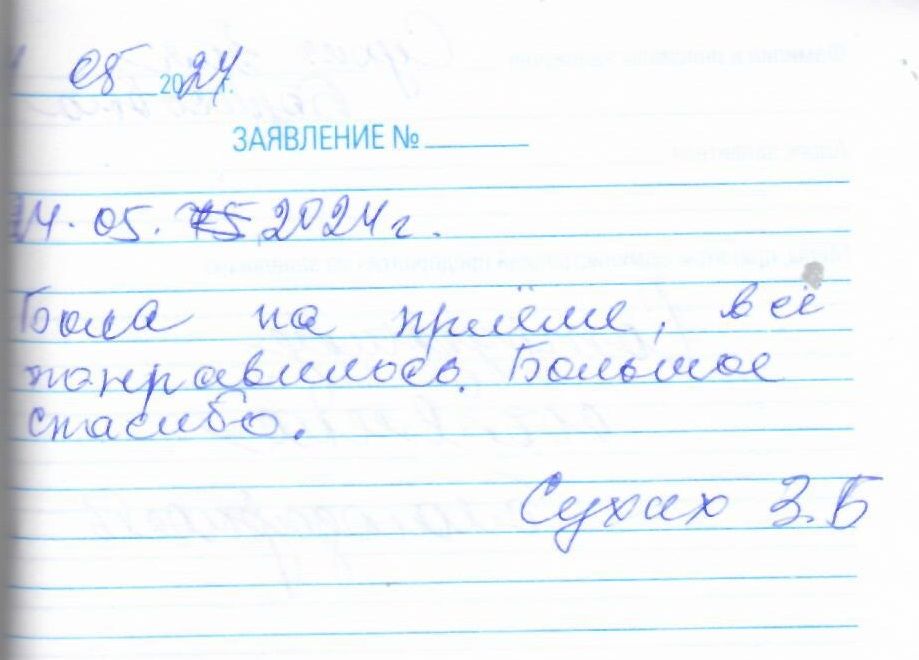 05 2024г.
ЗАЯВЛЕНИЕ № ______
14.05.2024г.
Была на приёме, всё
понравилось. Большое
спасибо.
Сухих З.Б